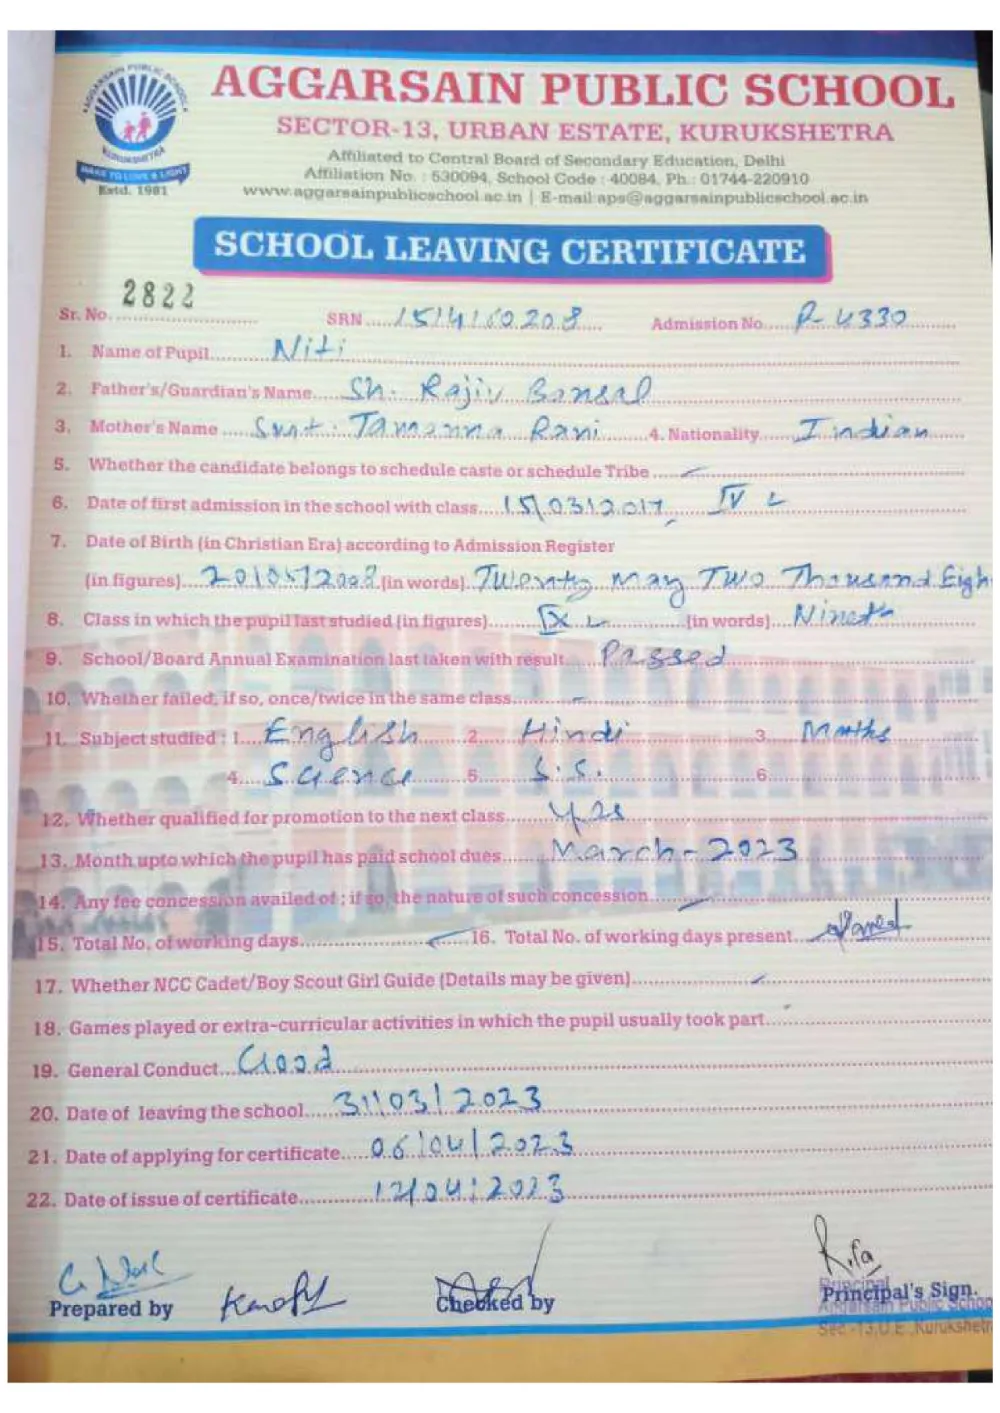 AGGARSAIN PUBLIC SCHOOL
SECTOR-13, URBAN ESTATE, KURUKSHETRA
Affiliated to Central Board of Secondary Education, Delhi
Affiliation No. : 530094, School Code : 40084, Ph.: 01744-220910
www.aggarsainpublicschool.ac.in | E-mail:aps@aggarsainpublicschool.ac.in
AGGARSAIN PUBLIC SCHOOL
KURUKSHETRA
Estd. 1981
SCHOOL LEAVING CERTIFICATE
Sr. No. 2822 SRN 1514160208 Admission No. P-4330
1. Name of Pupil Niti
2. Father's/Guardian's Name Sh. Rajiv Bansal
3. Mother's Name Smt. Tamanna Rani 4. Nationality Indian
5. Whether the candidate belongs to schedule caste or schedule Tribe -
6. Date of first admission in the school with class 15/03/2017, IV L
7. Date of Birth (in Christian Era) according to Admission Register
(in figures) 20/05/2008 (in words) Twenty May Two Thousand Eigh
8. Class in which the pupil last studied (in figures) IX L (in words) Nineth
9. School/Board Annual Examination last taken with result Passed
10. Whether failed, if so, once/twice in the same class -
11. Subject studied : 1. English 2. Hindi 3. Maths
4. Science 5. S.S. 6.
12. Whether qualified for promotion to the next class Yes
13. Month upto which the pupil has paid school dues March-2023
14. Any fee concession availed of ; if so, the nature of such concession -
15. Total No. of working days 16. Total No. of working days present
17. Whether NCC Cadet/Boy Scout Girl Guide (Details may be given) -
18. Games played or extra-curricular activities in which the pupil usually took part -
19. General Conduct Good
20. Date of leaving the school 31/03/2023
21. Date of applying for certificate 06/04/2023
22. Date of issue of certificate 12/04/2023
Prepared by Checked by Principal's Sign.
Principal
Aggarsain Public School
Sec.-13, U.E., Kurukshetra